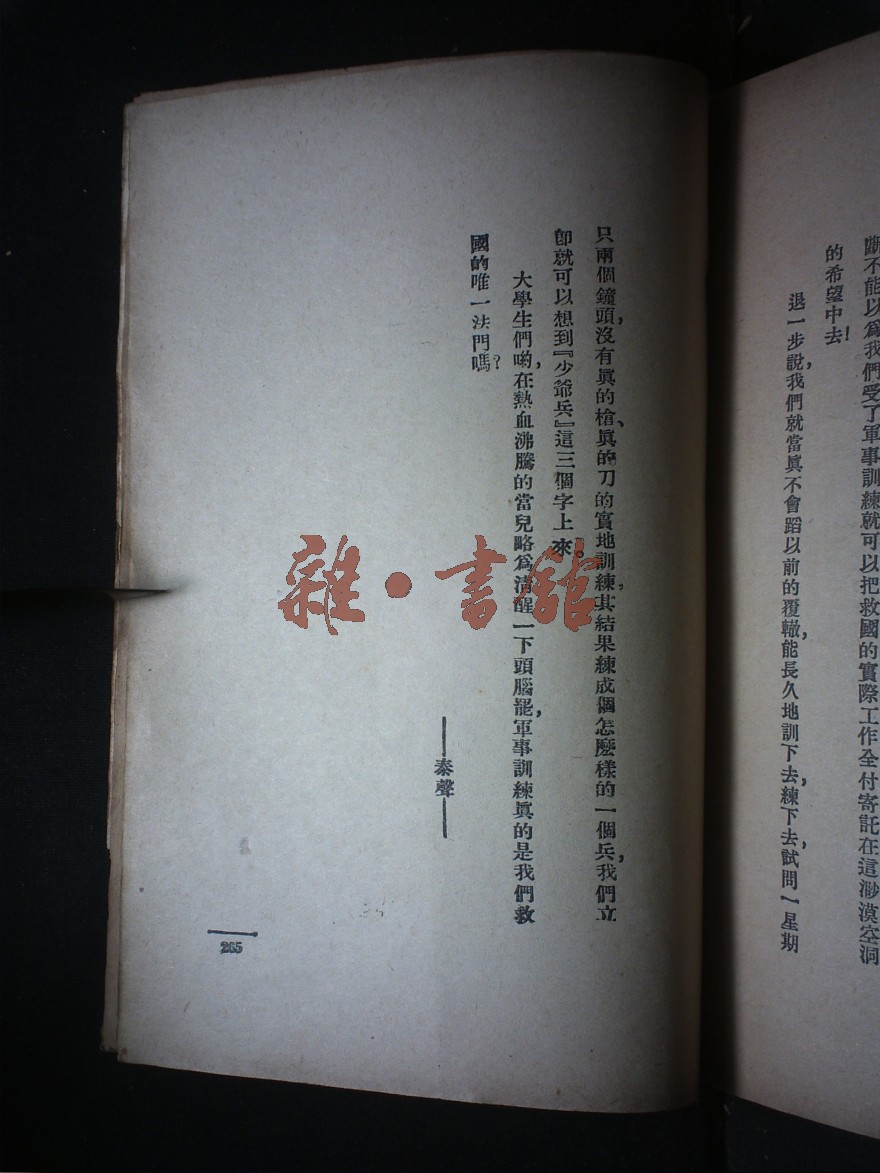 斷不能以爲我們受了軍事訓練就可以把救國的實際工作全付寄託在這渺漠空洞
的希望中去!
退一步說,我們就當眞不會蹈以前的覆轍,能長久地訓下去,練下去,試問一星期
只兩個鐘頭,沒有眞的槍、眞的刀的實地訓練,其結果練成個怎麼樣的一個兵,我們立
卽就可以想到『少爺兵』這三個字上來。
大學生們喲,在熱血沸騰的當兒略爲清醒一下頭腦罷,軍事訓練眞的是我們救
國的唯一法門嗎?
——泰聲——
265
雜·書館